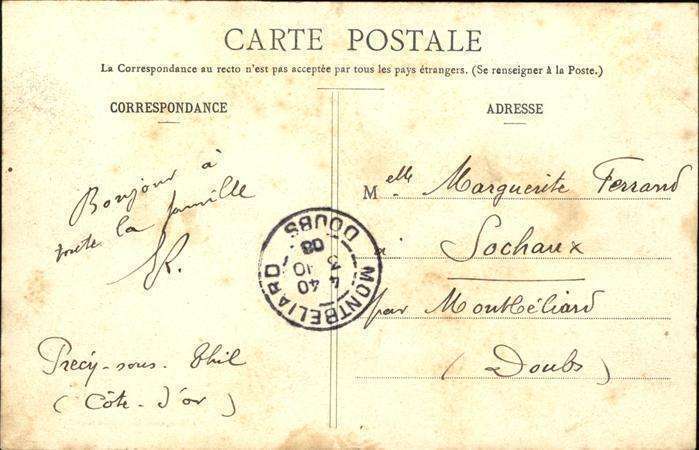 CARTE POSTALE
La Correspondance au recto n'est pas acceptée par tous les pays étrangers. (Se renseigner à la Poste.)
CORRESPONDANCE
Bonjour à
toute la famille
Précy-sous-Thil
(Côte-d'or)
ADRESSE
Melle Marguerite Ferrand
à Sochaux
par Montbéliard
(Doubs)
MONTBELIARD
DOUBS
40
4 10
08